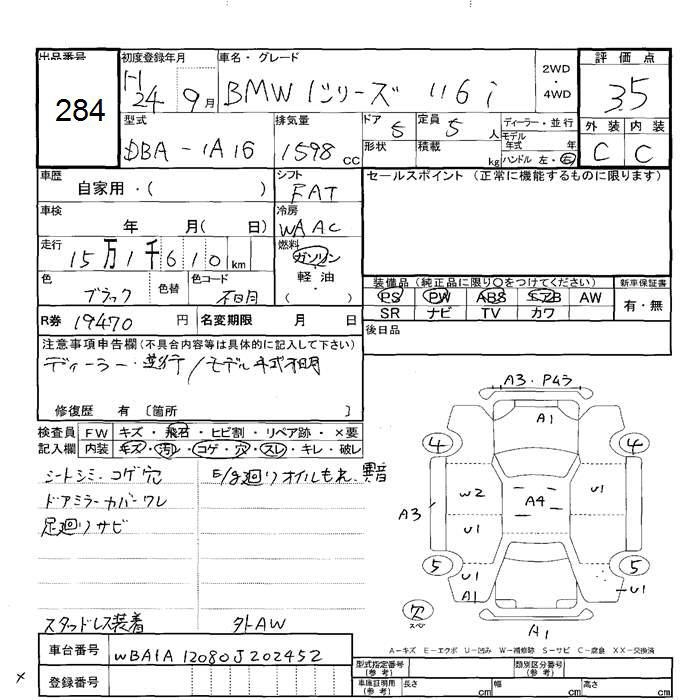 出品番号 初度登録年月 車名・グレード 評価点
284 H24 9月 BMW 1シリーズ 116i 2WD ・ 4WD 3.5
型式 排気量 ドア 5 定員 5 人 ディーラー・並行 外装 内装
DBA-1A16 1598 cc 形状 積載 kg モデル年式 年 C C
ハンドル 左・右
車歴 自家用・( ) シフト FAT セールスポイント (正常に機能するものに限ります)
車検 年 月( 日) 冷房 WAAC
走行 15万1千610km 燃料 ガソリン・軽油・( )
色 ブラック 色替 色コード 不明
装備品 (純正品に限り○をつけてください) 新車保証書
PS PW ABS エアB AW 有・無
SR ナビ TV カワ
R券 19470 円 名変期限 月 日 後日品
注意事項申告欄 (不具合内容等は具体的に記入して下さい)
ディーラー・並行/モデル年式不明
修復歴 有 [箇所 ]
検査員 FW キズ・飛石・ヒビ割・リペア跡・×要
記入欄 内装 キズ・汚れ・コゲ・穴・スレ・キレ・破レ
シートシミ・コゲ穴 E/g廻りオイルもれ、異音
ドアミラーカバーワレ
足廻りサビ
スタッドレス装着 外AW
A3・Pムラ
A1
4 4
W2 A4 U1
A3 U1
5 5
U1
A1 U1
欠
スペア
A1
A-キズ E-エクボ U-凹み W-補修跡 S-サビ C-腐食 XX-交換済
車台番号 WBA1A12080J202452
登録番号
型式指定番号 (参考) 類別区分番号 (参考)
車庫証明用 (参考) 長さ cm 幅 cm 高さ cm
×